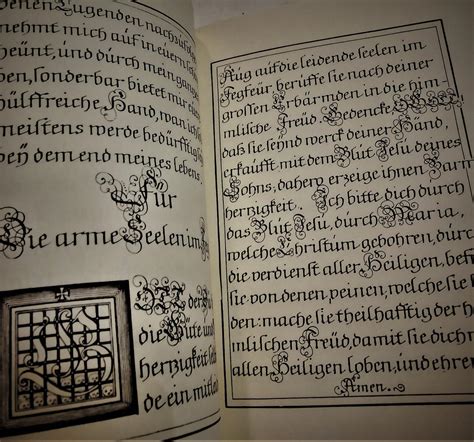 denen Tugenden
nehmt mich auf in
heünt, und dúrch mein
ben, sonderbar bietet mir
hülffreiche Hand, wan
meistens werde
beÿ dem end meines lebens.
Für
Die arme Seelen im
der
die Güte und
herzigkeit
de ein
Aúg aúf die leidende seelen im
Fegfeúr berúffe sie nach deiner
grossen Erbärmden in die him-
mlische Freúd. Gedencke
daß sie seÿnd werck deiner Händ,
erkaúfft mit dem Blút Jesú deines
Sohns, dahero erzeige ihnen Barm
herzigkeit. Ich bitte dich dúrch
das Blút Jesú, dúrch Maria,
welche Christúm gebohren, dúrch
die verdienst aller Heiligen, befreÿ
sie von denen peinen, welche sie
den: mache sie theilhafftig der him
mlischen Freúd, damit sie dich mit
allen Heiligen loben, und ehren.
Amen.